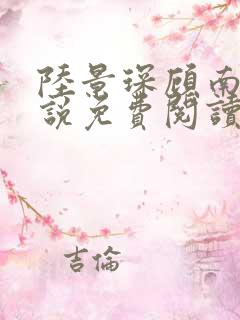 陸景琛顧南
說免費閱讀
吉倫